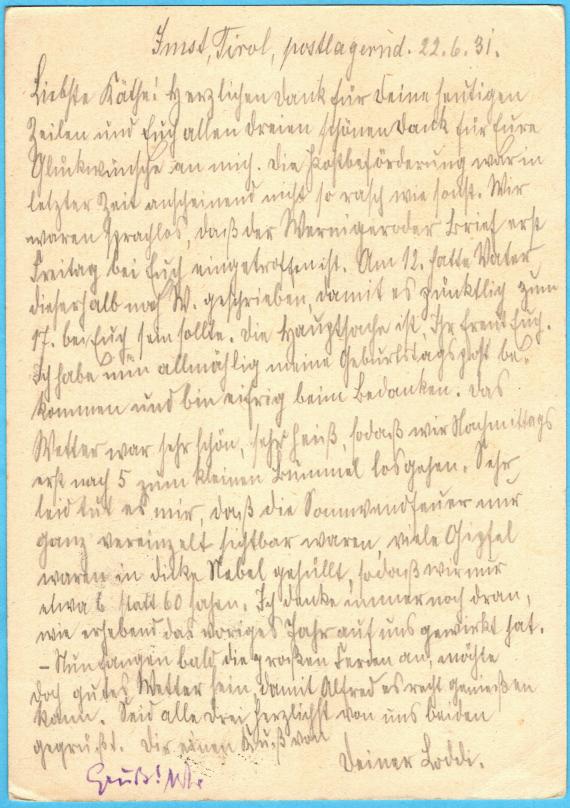 Imst, Tirol, postlagernd. 22.6.31.
Liebste Käthe! Herzlichen Dank für Deine heutigen
Zeilen und Euch allen dreien schönen Dank für Eure
Glückwünsche an mich. Die Postbeförderung war in
letzter Zeit anscheinend nicht so rasch wie sonst. Wir
waren sprachlos, daß der Wernigeroder Brief erst
Freitag bei Euch eingetroffen ist. Am 12. hatte Vater
dieserhalb nach W. geschrieben, damit es pünktlich zum
17. bei Euch sein sollte. Die Hauptsache ist, Ihr freut Euch.
Ich habe nun allmählig meine Geburtstagspost be-
kommen und bin eifrig beim Bedanken. Das
Wetter war sehr schön, sehr heiß, sodaß wir Nachmittags
erst nach 5 zum kleinen Bummel losgehen. Sehr
leid tut es mir, daß die Sonnwendfeuer nur
ganz vereinzelt sichtbar waren, viele Gipfel
waren in dicke Nebel gehüllt, sodaß wir nur
etwa 6 statt 60 sahen. Ich denke immer noch dran,
wie erhebend das voriges Jahr auf uns gewirkt hat.
- Nun fangen bald die großen Ferien an, möchte
doch gutes Wetter sein, damit Alfred es recht genießen
kann. Seid alle drei herzlichst von uns beiden
gegrüßt. Dir einen Gruß von
Deiner Loddi.
Gruß!